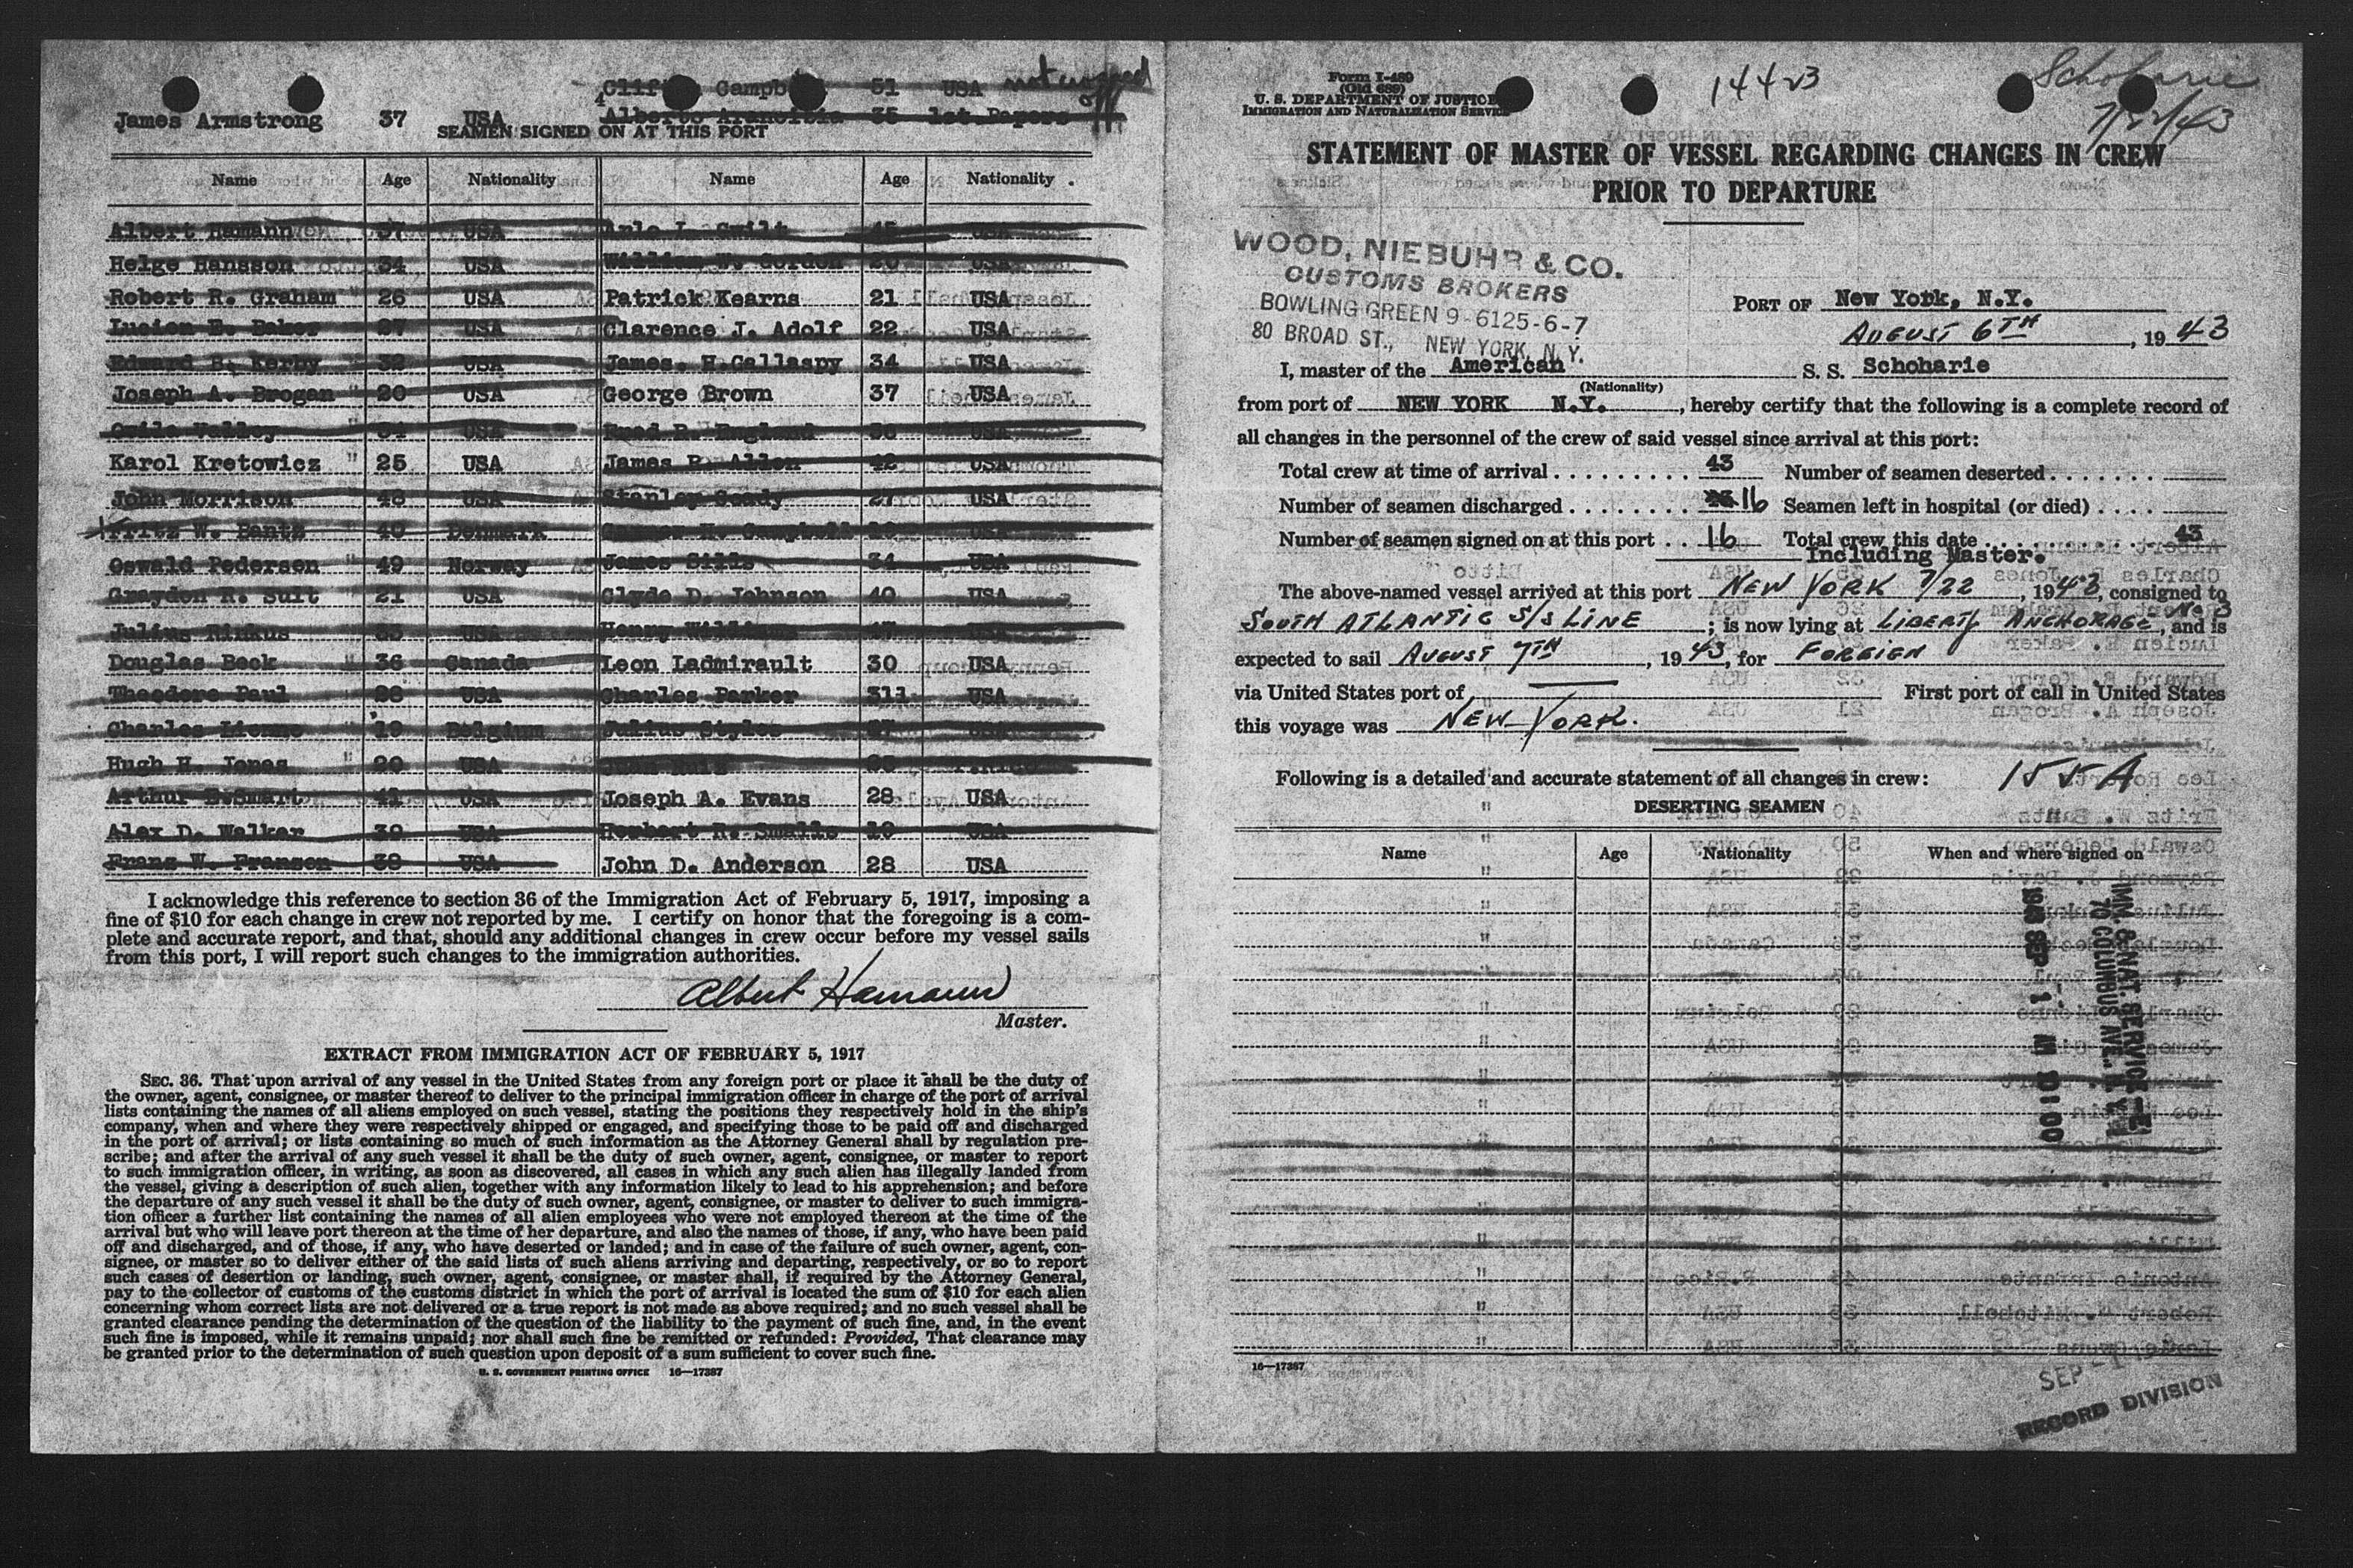 Clif Campb 51 USA not signed
James Armstrong 37 USA
Alberto 35 1st. Papers
SEAMEN SIGNED ON AT THIS PORT
Name Age Nationality Name Age Nationality
Albert Hamann 37 USA Arlo L. Swilt 45 USA
Helge Hansson 34 USA William W. Gordon 20 USA
Robert R. Graham " 26 USA Patrick Kearns 21 USA
Lucien E. Baker 27 USA Clarence J. Adolf 22 USA
Edward B. Kerby 32 USA James. H.Gallaspy 34 USA
Joseph A. Brogan " 20 USA George Brown 37 USA
" 34 USA Fred B. England 36 USA
Karol Kretowicz " 25 USA James B. Allen 42 USA
John Morrison 48 USA Stanley Seady 27 USA
Fritz W. Bantz " 40 Denmark Campbell USA
Oswald Pedersen " 49 Norway James Sills 34 USA
Graydon R. Suit " 21 USA Clyde D. Johnson 40 USA
Julius Rinkus " 35 USA Henry Williams 47 USA
Douglas Beck " 36 Canada Leon Ladmirault 30 USA
Theodore Paul " 28 USA Charles Parker 311 USA
Charles Lienne " 19 Belgium Julius Styles 27 USA
Hugh H. Jones " 20 USA
Arthur E.Smart 41 USA Joseph A. Evans 28 USA
Alex D. Walker 39 USA Herbert R. Smalls 18 USA
Frans W. Fransen 38 USA John D. Anderson 28 USA
I acknowledge this reference to section 36 of the Immigration Act of February 5, 1917, imposing a
fine of $10 for each change in crew not reported by me. I certify on honor that the foregoing is a com-
plete and accurate report, and that, should any additional changes in crew occur before my vessel sails
from this port, I will report such changes to the immigration authorities.
Albert Hamann
Master.
EXTRACT FROM IMMIGRATION ACT OF FEBRUARY 5, 1917
SEC. 36. That upon arrival of any vessel in the United States from any foreign port or place it shall be the duty of
the owner, agent, consignee, or master thereof to deliver to the principal immigration officer in charge of the port of arrival
lists containing the names of all aliens employed on such vessel, stating the positions they respectively hold in the ship's
company, when and where they were respectively shipped or engaged, and specifying those to be paid off and discharged
in the port of arrival; or lists containing so much of such information as the Attorney General shall by regulation pre-
scribe; and after the arrival of any such vessel it shall be the duty of such owner, agent, consignee, or master to report
to such immigration officer, in writing, as soon as discovered, all cases in which any such alien has illegally landed from
the vessel, giving a description of such alien, together with any information likely to lead to his apprehension; and before
the departure of any such vessel it shall be the duty of such owner, agent, consignee, or master to deliver to such immigra-
tion officer a further list containing the names of all alien employees who were not employed thereon at the time of the
arrival but who will leave port thereon at the time of her departure, and also the names of those, if any, who have been paid
off and discharged, and of those, if any, who have deserted or landed; and in case of the failure of such owner, agent, con-
signee, or master so to deliver either of the said lists of such aliens arriving and departing, respectively, or so to report
such cases of desertion or landing, such owner, agent, consignee, or master shall, if required by the Attorney General,
pay to the collector of customs of the customs district in which the port of arrival is located the sum of $10 for each alien
concerning whom correct lists are not delivered or a true report is not made as above required; and no such vessel shall be
granted clearance pending the determination of the question of the liability to the payment of such fine, and, in the event
such fine is imposed, while it remains unpaid; nor shall such fine be remitted or refunded: Provided, That clearance may
be granted prior to the determination of such question upon deposit of a sum sufficient to cover such fine.
U. S. GOVERNMENT PRINTING OFFICE 16—17387
Form I-489
(Old 689)
U. S. DEPARTMENT OF JUSTICE
IMMIGRATION AND NATURALIZATION SERVICE
14423
Schoharie
7/22/43
STATEMENT OF MASTER OF VESSEL REGARDING CHANGES IN CREW
PRIOR TO DEPARTURE
WOOD, NIEBUHR & CO.
CUSTOMS BROKERS
BOWLING GREEN 9-6125-6-7
80 BROAD ST., NEW YORK, N.Y.
PORT OF New York, N.Y.
AUGUST 6TH, 1943
I, master of the American S. S. Schoharie
(Nationality)
from port of NEW YORK N.Y., hereby certify that the following is a complete record of
all changes in the personnel of the crew of said vessel since arrival at this port:
Total crew at time of arrival . . . . . . . . . 43 Number of seamen deserted . . . . . . .
Number of seamen discharged . . . . . . . . 16 Seamen left in hospital (or died) . . . .
Number of seamen signed on at this port . . 16 Total crew this date . . . . . . . . . . 43
Including Master.
The above-named vessel arrived at this port NEW YORK 7/22, 1943, consigned to
SOUTH ATLANTIC S/S LINE; is now lying at LIBERTY ANCHORAGE No 3, and is
expected to sail AUGUST 7TH, 1943, for FOREIGN
via United States port of — First port of call in United States
this voyage was NEW YORK.
Following is a detailed and accurate statement of all changes in crew: 155A
DESERTING SEAMEN
Name Age Nationality When and where signed on
IMM. & NAT. SERVICE
70 COLUMBUS AVE. N.Y.
1943 SEP -1 AM 10:00
16—17387
SEP -1
RECORD DIVISION